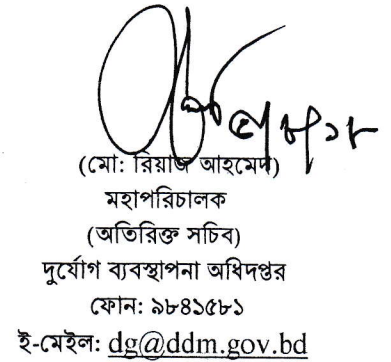 (মো: রিয়াজ আহমেদ)
মহাপরিচালক
(অতিরিক্ত সচিব)
দুর্যোগ ব্যবস্থাপনা অধিদপ্তর
ফোন: ৯৮৪১৫৮১
ই-মেইল: dg@ddm.gov.bd